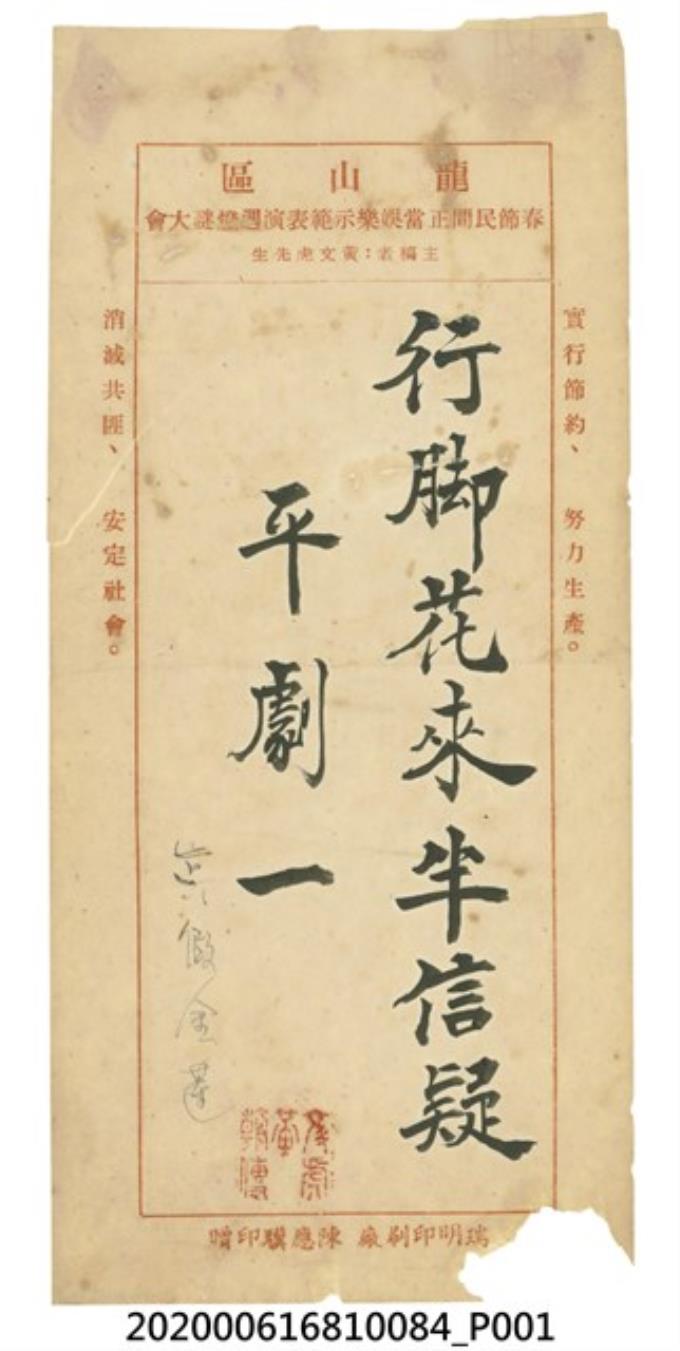 龍山區
春節民間正當娛樂示範表演迎燈謎大會
主稿者：黃文虎先生
實行節約、努力生產。
行脚花來半信疑
平劇一
真假金蓮
消滅共匪、安定社會。
瑞明印刷廠 陳應騏印贈
202000616810084_P001